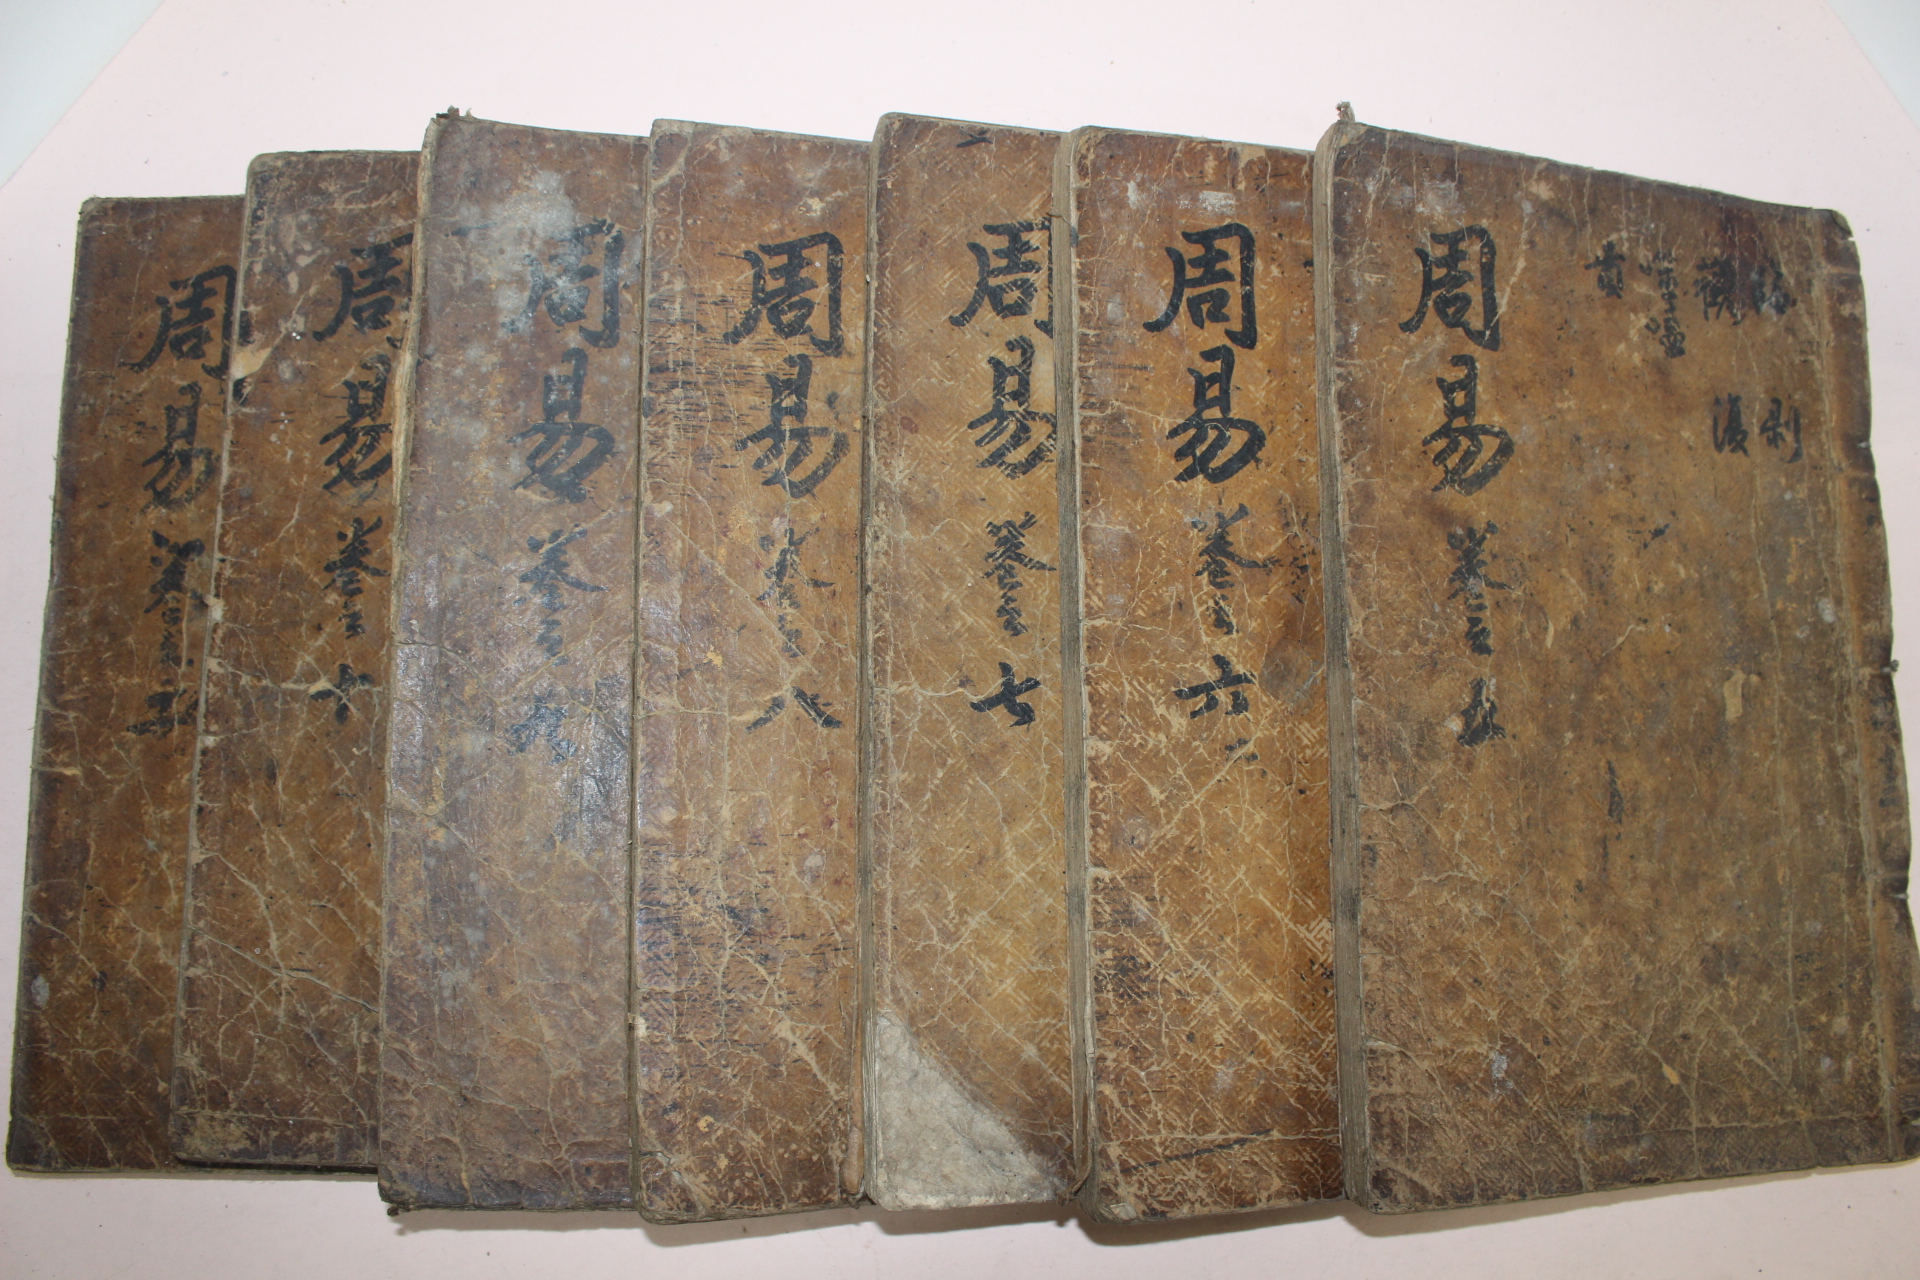 臨 剝
觀 復
噬嗑
賁
周易 卷之五
周易 卷之六
周易 卷之七
周易 卷之八
周易 卷之九
周易 卷之十
周易 卷之